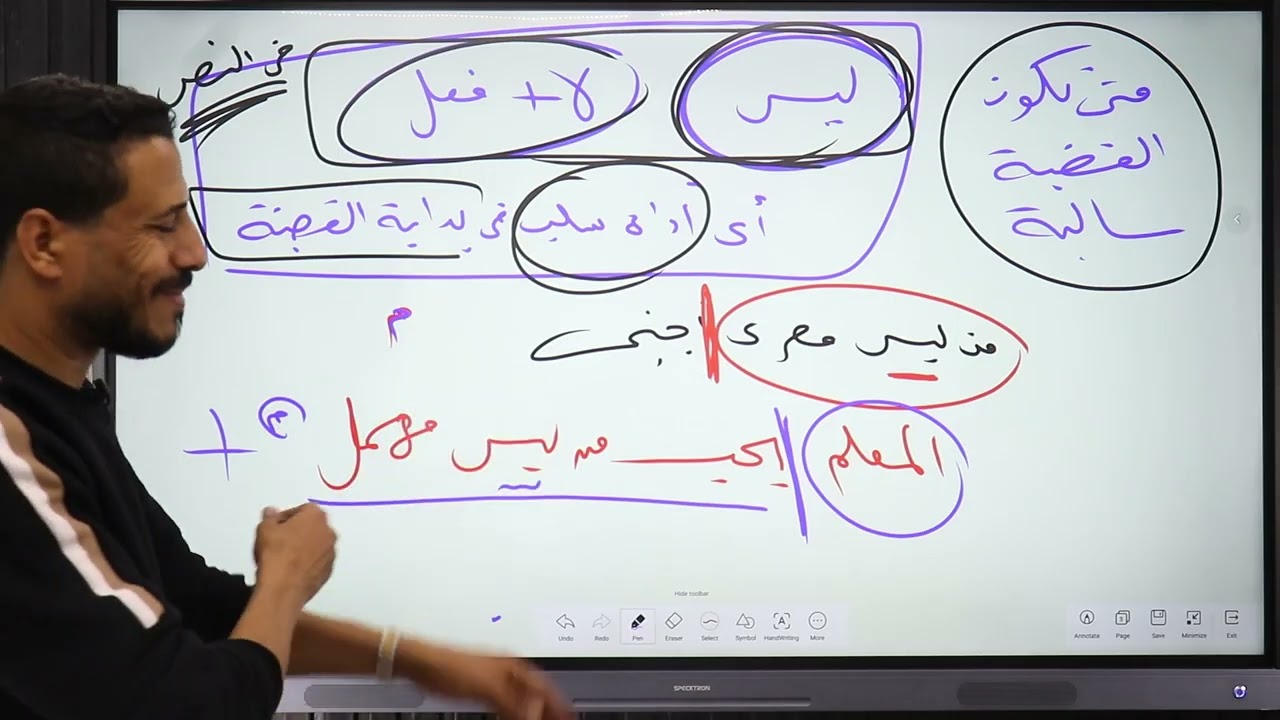 متى تكون
القضية
سالبة
ليس
لا + فعل
فى النص
أى أداة سلب فى بداية القضية
من ليس مصرى | أجنبى
م
المعلم | يحب من ليس مهمل م +
Hide toolbar
Undo Redo Pen Eraser Select Symbol HandWriting More
Annotate Page Save Minimize Exit
SPECKTRON